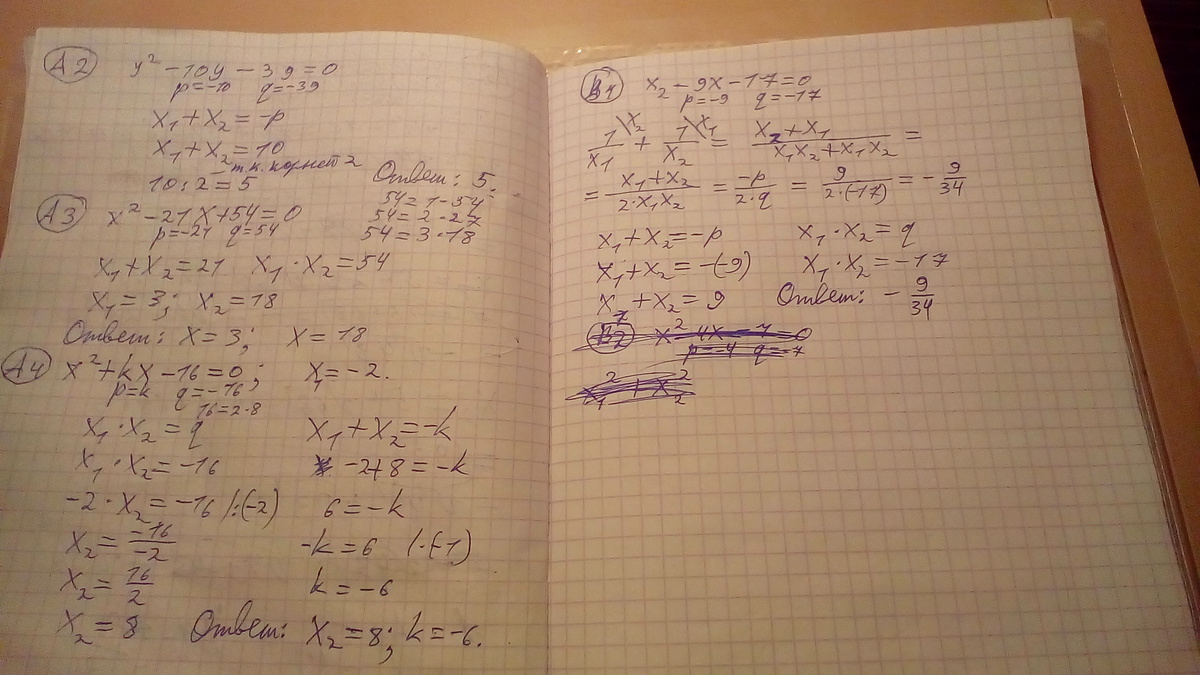 A2 y² - 10y - 39 = 0
p = -10 q = -39
x₁ + x₂ = -p
x₁ + x₂ = 10
т.к. корней 2
10 : 2 = 5 Ответ: 5.
A3 x² - 21x + 54 = 0
p = -21 q = 54
54 = 1 · 54
54 = 2 · 27
54 = 3 · 18
x₁ + x₂ = 21 x₁ · x₂ = 54
x₁ = 3; x₂ = 18
Ответ: x = 3; x = 18
A4 x² + kx - 16 = 0; x₁ = -2.
p = k q = -16
16 = 2 · 8
x₁ · x₂ = q x₁ + x₂ = -k
x₁ · x₂ = -16 -2 + 8 = -k
-2 · x₂ = -16 /:(-2) 6 = -k
x₂ = -16/-2 -k = 6 /·(-1)
x₂ = 16/2 k = -6
x₂ = 8 Ответ: x₂ = 8; k = -6.
B1 x₂ - 9x - 17 = 0
p = -9 q = -17
1\x₂/x₁ + 1\x₁/x₂ = x₂ + x₁/x₁x₂ + x₁x₂ =
= x₁ + x₂/2·x₁x₂ = -p/2·q = 9/2·(-17) = - 9/34
x₁ + x₂ = -p x₁ · x₂ = q
x₁ + x₂ = -(-9) x₁ · x₂ = -17
x₁ + x₂ = 9 Ответ: - 9/34
B2 x² - 4x - 7 = 0
p = -4 q = -7
x₁² + x₂²